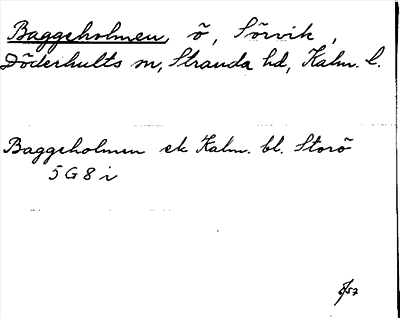 Baggeholmen, ö, Sörvik,
Döderhults sn, Stranda hd, Kalm. l.
Baggeholmen ek Kalm. bl. Storö
5 G 8 i